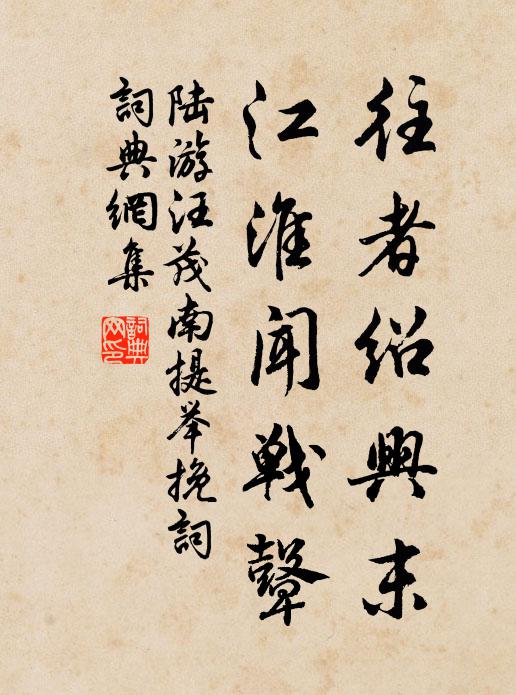 往者紹興末
江淮聞戰鼙
陸游汪茂南提举挽詞
詞典網集
詞典網印